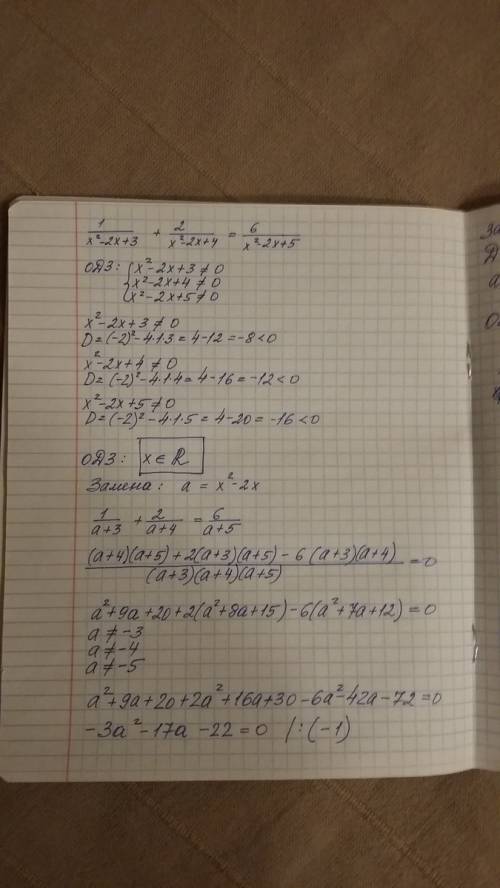 1/(x²-2x+3) + 2/(x²-2x+4) = 6/(x²-2x+5)
ОДЗ: { x²-2x+3≠0
x²-2x+4≠0
x²-2x+5≠0
x²-2x+3≠0
D=(-2)²-4·1·3=4-12=-8<0
x²-2x+4≠0
D=(-2)²-4·1·4=4-16=-12<0
x²-2x+5≠0
D=(-2)²-4·1·5=4-20=-16<0
ОДЗ: x∈ℝ
Замена: a = x²-2x
1/(a+3) + 2/(a+4) = 6/(a+5)
((a+4)(a+5)+2(a+3)(a+5)-6(a+3)(a+4))/((a+3)(a+4)(a+5)) =0
a²+9a+20+2(a²+8a+15)-6(a²+7a+12)=0
a≠-3
a≠-4
a≠-5
a²+9a+20+2a²+16a+30-6a²-42a-72=0
-3a²-17a-22=0 |:(-1)